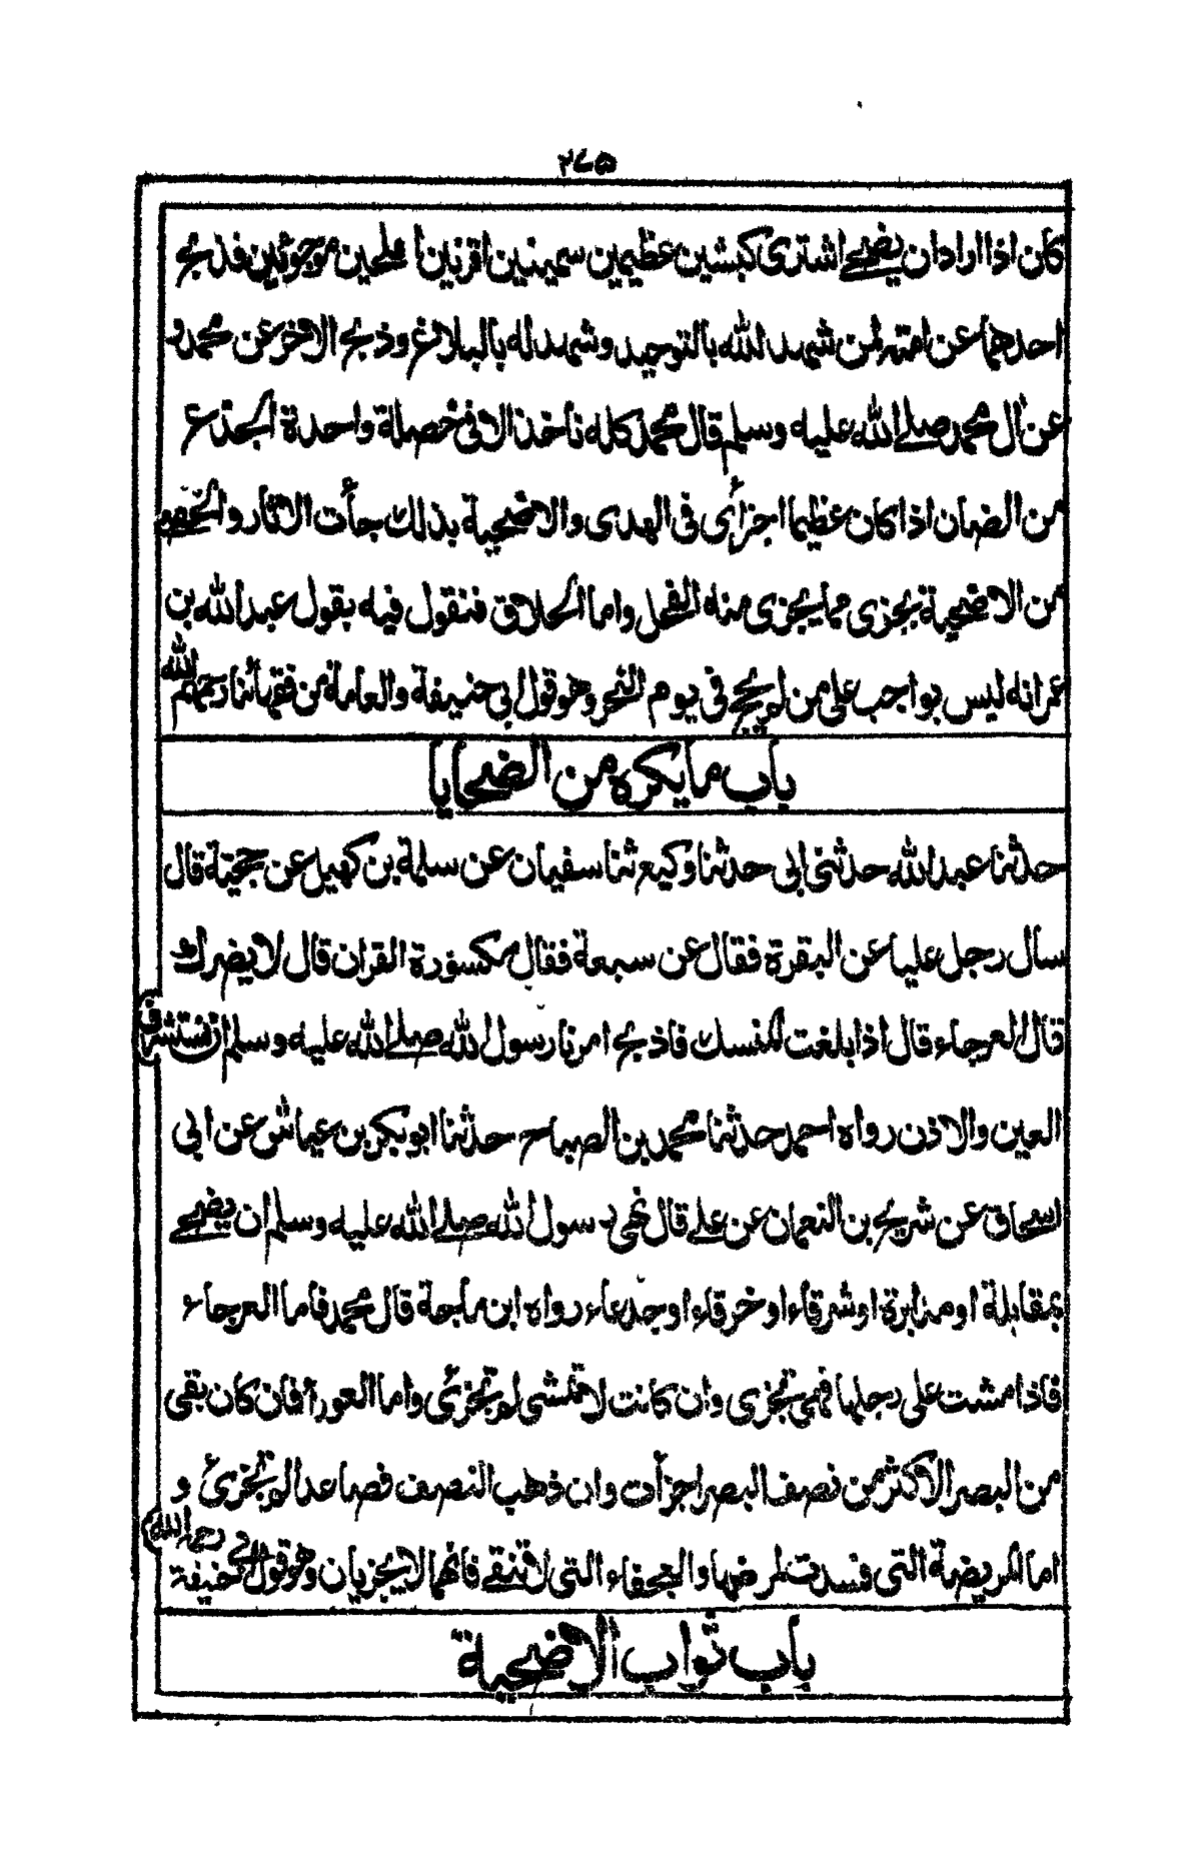 ٢٧٥
كان اذا اراد ان يضحے اشترى كبشين عظيمين سمينين اقرنين املحين موجوئين فذبح
احدهما عن امته لمن شهد لله بالتوحيد وشهد له بالبلاغ وذبح الاخر عن محمد و
عن ال محمد صلے الله عليه وسلم قال محمد كله ناخذ الا فى خصلة واحدة الجذع
من الضان اذا كان عظيما اجزأى فى الهدى والاضحية بذلك جأت الاثار والخصى
من الاضحية يجزى مما يجزى منه الفحل واما الحلاق فنقول فيه بقول عبد الله بن
عمر انه ليس بواجب على من لم يحج فى يوم النحر وهو قول ابى حنيفة والعامة من فقهائنا رحمهم الله
باب ما يكره من الضحايا
حدثنا عبد الله حدثنى ابى حدثنا وكيع ثنا سفيان عن سلمة بن كهيل عن حجية قال
سأل رجل عليا عن البقرة فقال عن سبعة فقال مكسورة القرن قال لا يضرك
قال العرجاء قال اذا بلغت المنسك فاذبح امرنا رسول الله صلے الله عليه وسلم ان نستشرف
العين والاذن رواه احمد حدثنا محمد بن الصباح حدثنا ابو بكر بن عياش عن ابى
اسحاق عن شريح بن النعمان عن علے قال نهى رسول الله صلے الله عليه وسلم ان يضحے
بمقابلة او مدابرة او شرقاء او خرقاء او جدعاء رواه ابن ماجة قال محمد فاما العرجاء
فاذا مشت على رجلها فهى تجزى وان كانت لا تمشى لم تجزئى واما العورأ فان كان بقى
من البصر الاكثر من نصف البصر اجزأت وان ذهب النصف فصاعدا لم تجزئ و
اما المريضة التى فسدت لمرضها والعجفاء التى لا تنقے فانهما لا يجزيان وهو قول ابى حنيفة رحمه الله
باب ثواب الاضحية